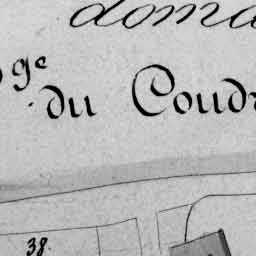 doma
ge
du Coudr
38.